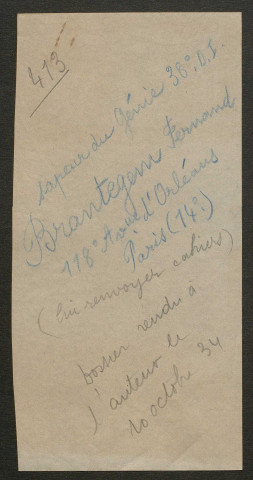 413
sapeur du Génie 38e. D.I.
Brantegem Fernand
118e Ave d'Orléans
Paris (14e.)
(lui renvoyer cahiers)
dossier rendu à
l'auteur le
10 octobre 34